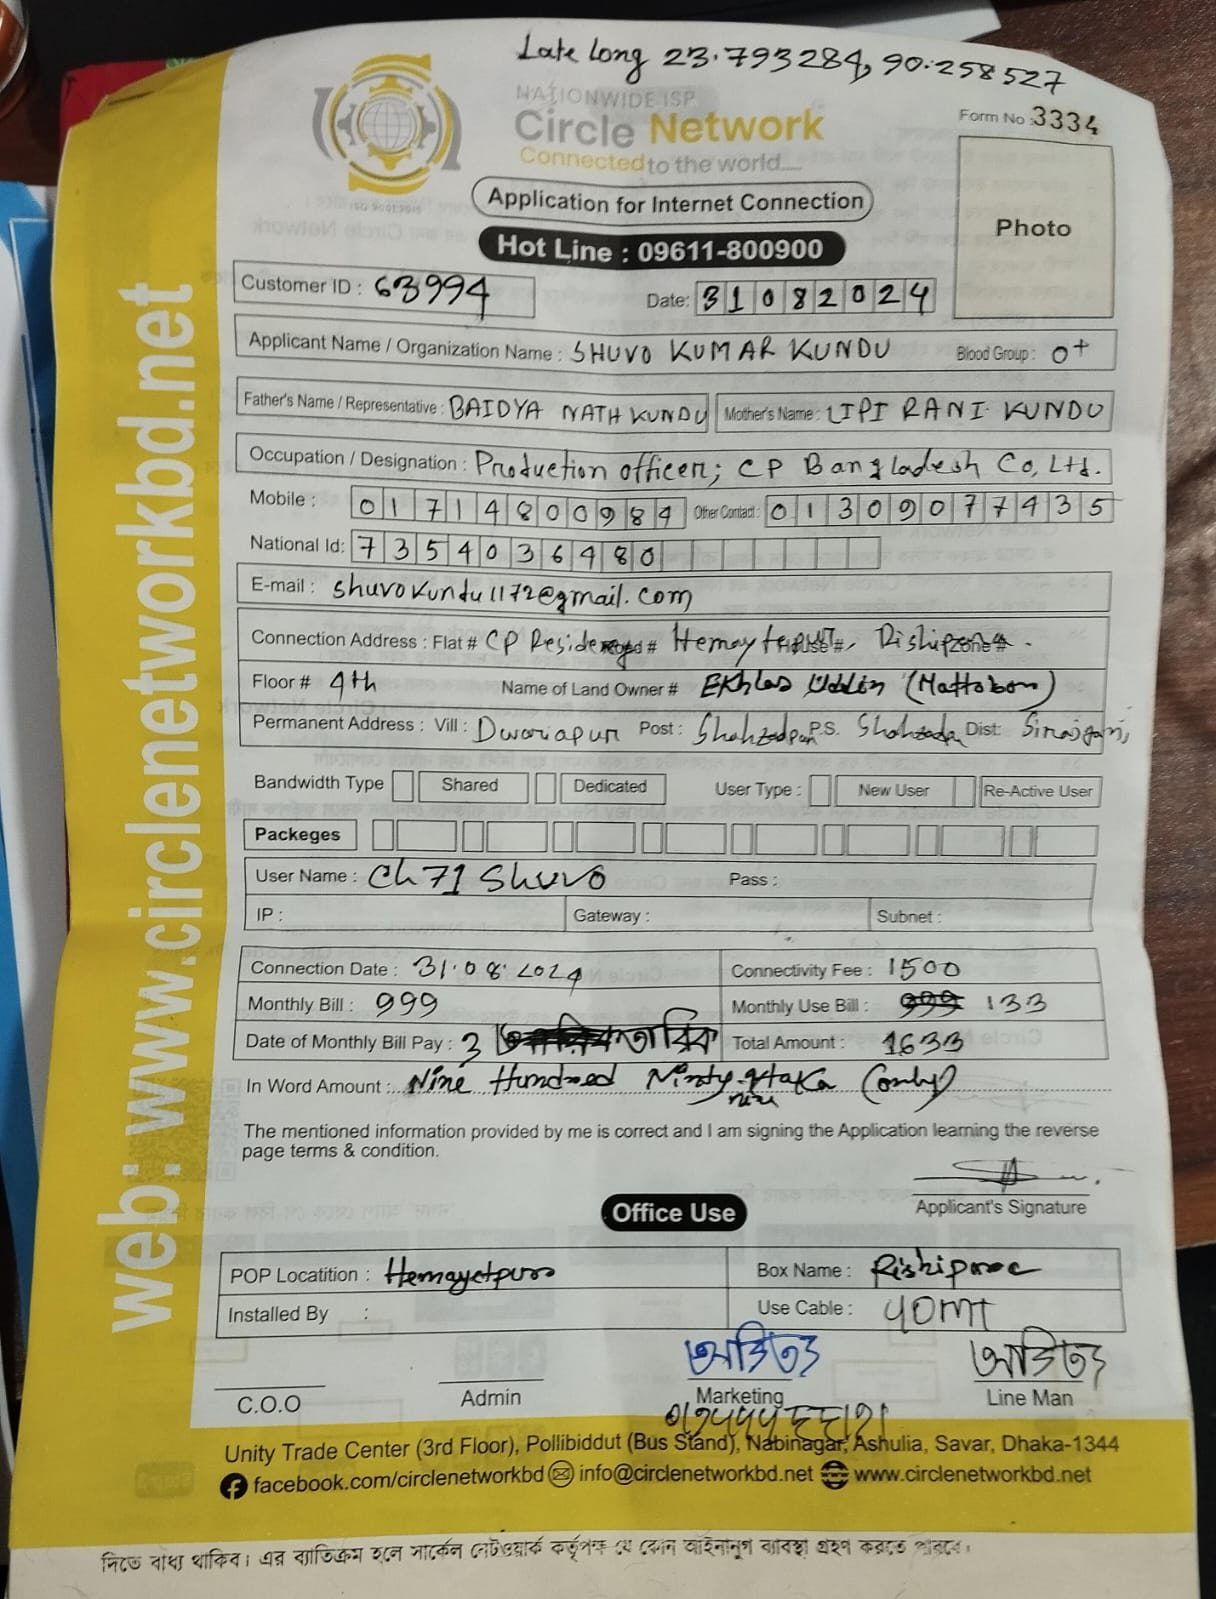 Late long 23.793284, 90.258527
NATIONWIDE ISP
Circle Network
Connected to the world....
Form No : 3334
ISO 9001:2015
Application for Internet Connection
Photo
Hot Line : 09611-800900
Customer ID : 63994
Date: 31082024
Applicant Name / Organization Name : SHUVO KUMAR KUNDU Blood Group : O+
Father's Name / Representative : BAIDYA NATH KUNDU Mother's Name : LIPI RANI KUNDU
Occupation / Designation : Production officer; CP Bangladesh Co, Ltd.
Mobile : 01714800984 Other Contact : 01309077435
National Id: 7354036480
E-mail : shuvokundu1172@gmail.com
Connection Address : Flat # CP Road # House #, Zone #
Floor # 4th Name of Land Owner # Ekhlas Uddin (Mattobor)
Permanent Address : Vill : Dwariapur Post : Shahzadpur P.S. Shahzadpur Dist: Sirajganj
Bandwidth Type Shared Dedicated User Type : New User Re-Active User
Packeges
User Name : Ch71 Shuvo Pass :
IP : Gateway : Subnet :
Connection Date : 31.08.2024 Connectivity Fee : 1500
Monthly Bill : 999 Monthly Use Bill : 999 133
Date of Monthly Bill Pay : 3 তারিখ Total Amount : 1633
In Word Amount : Nine Hundred Ninty-nine taka (only)
The mentioned information provided by me is correct and I am signing the Application learning the reverse
page terms & condition.
Applicant's Signature
Office Use
POP Locatition : Hemayetpur Box Name : Rishipara
Installed By : Use Cable : 40mt
C.O.O Admin Marketing Line Man
Unity Trade Center (3rd Floor), Pollibiddut (Bus Stand), Nabinagar, Ashulia, Savar, Dhaka-1344
facebook.com/circlenetworkbd info@circlenetworkbd.net www.circlenetworkbd.net
দিতে বাধ্য থাকিব। এর ব্যতিক্রম হলে সার্কেল নেটওয়ার্ক কর্তৃপক্ষ যে কোন আইনানুগ ব্যাবস্থা গ্রহণ করতে পারবে।
web: www.circlenetworkbd.net